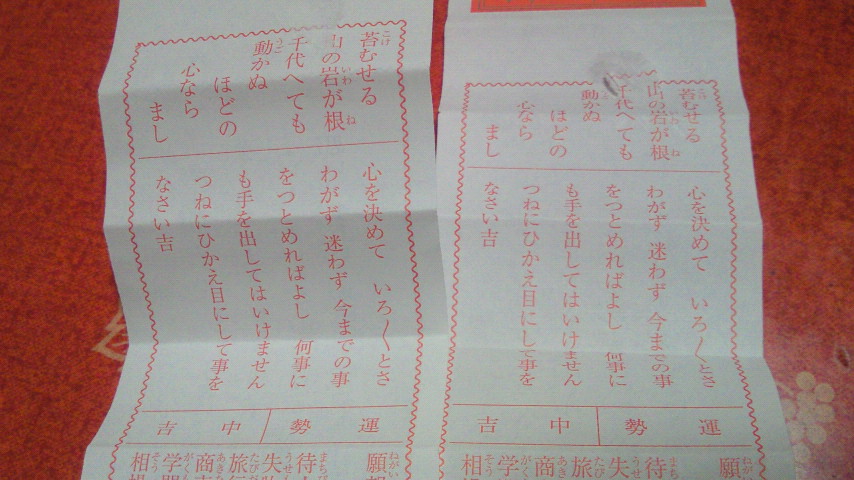 苔むせる
山の岩が根
千代へても
動かぬ
ほどの
心なら
まし
心を決めて いろ〳〵とさ
わがず 迷わず 今までの事
をつとめればよし 何事に
も手を出してはいけません
つねにひかえ目にして事を
なさい吉
運勢
中吉
願
待
失
旅
商
学
相
苔むせる
山の岩が根
千代へても
動かぬ
ほどの
心なら
まし
心を決めて いろ〳〵とさ
わがず 迷わず 今までの事
をつとめればよし 何事に
も手を出してはいけません
つねにひかえ目にして事を
なさい吉
運勢
中吉
願
待
失
旅
商
学
相